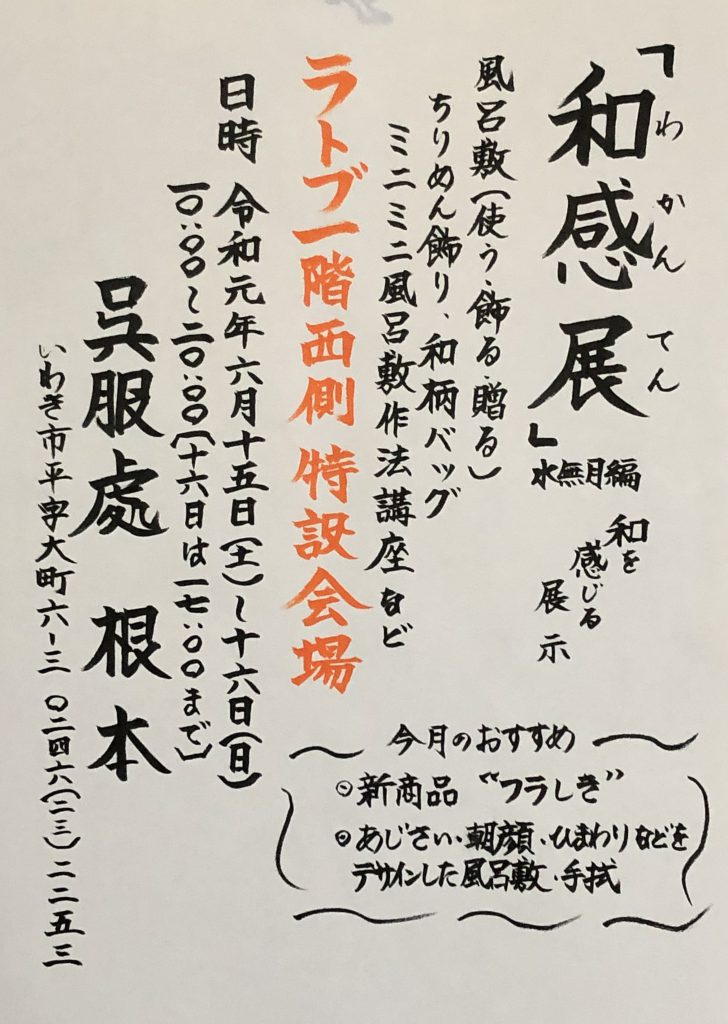 「和感展」
わかんてん
水無月編
和を
感じる
展示
風呂敷(使う・飾る・贈る)
ちりめん飾り、和柄バッグ
ミニミニ風呂敷作法講座など
ラトブ一階西側 特設会場
日時 令和元年六月十五日(土)〜十六日(日)
一〇:〇〇〜二〇:〇〇(十六日は一七:〇〇まで)
呉服處 根本
いわき市平字大町六-三 〇二四六(二三)二二五三
今月のおすすめ
◎新商品 “フラしき”
◎あじさい・朝顔・ひまわりなどを
デザインした風呂敷・手拭